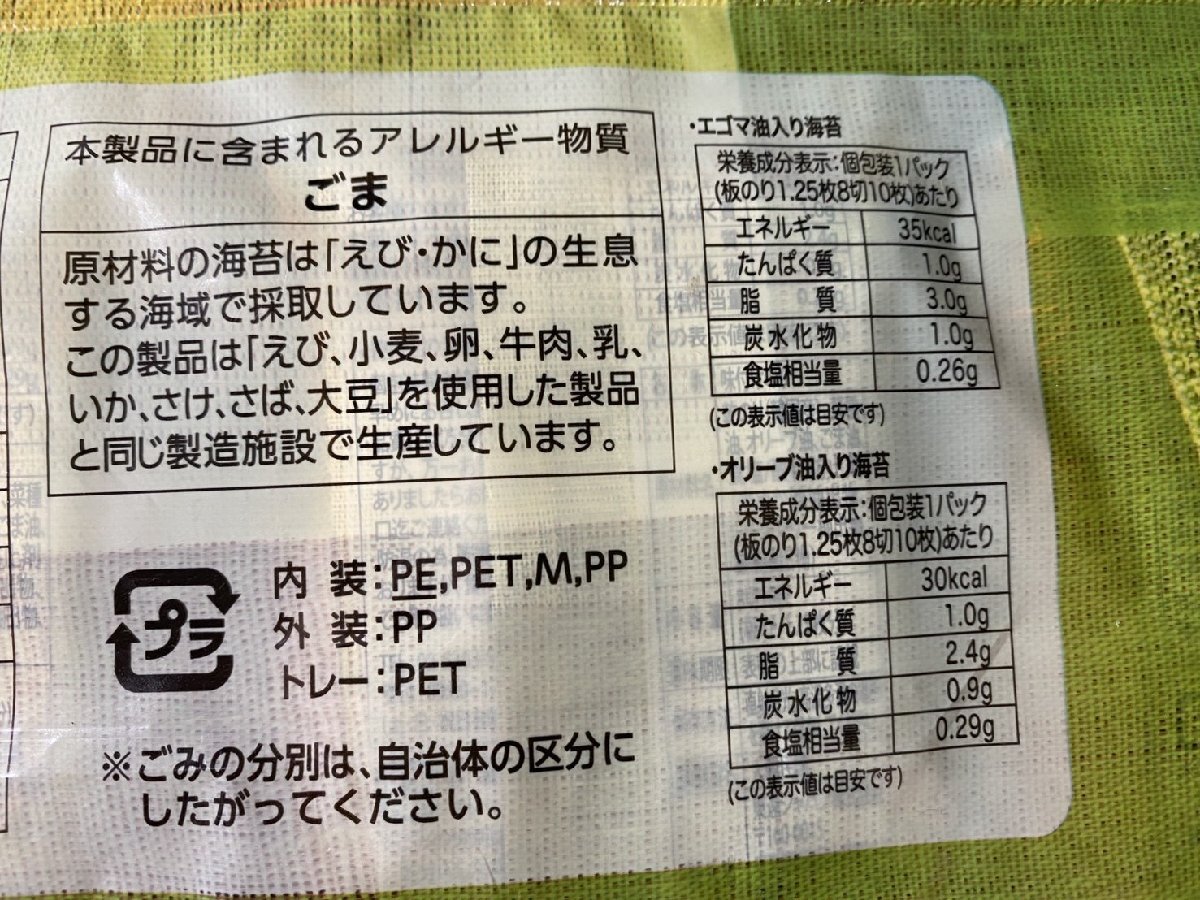 本製品に含まれるアレルギー物質
ごま
原材料の海苔は「えび・かに」の生息
する海域で採取しています。
この製品は「えび、小麦、卵、牛肉、乳、
いか、さけ、さば、大豆」を使用した製品
と同じ製造施設で生産しています。
プラ
内 装:PE,PET,M,PP
外 装:PP
トレー:PET
※ごみの分別は、自治体の区分に
したがってください。
・エゴマ油入り海苔
栄養成分表示:個包装1パック
(板のり1.25枚8切10枚)あたり
エネルギー 35kcal
たんぱく質 1.0g
脂 質 3.0g
炭水化物 1.0g
食塩相当量 0.26g
(この表示値は目安です)
・オリーブ油入り海苔
栄養成分表示:個包装1パック
(板のり1.25枚8切10枚)あたり
エネルギー 30kcal
たんぱく質 1.0g
脂 質 2.4g
炭水化物 0.9g
食塩相当量 0.29g
(この表示値は目安です)